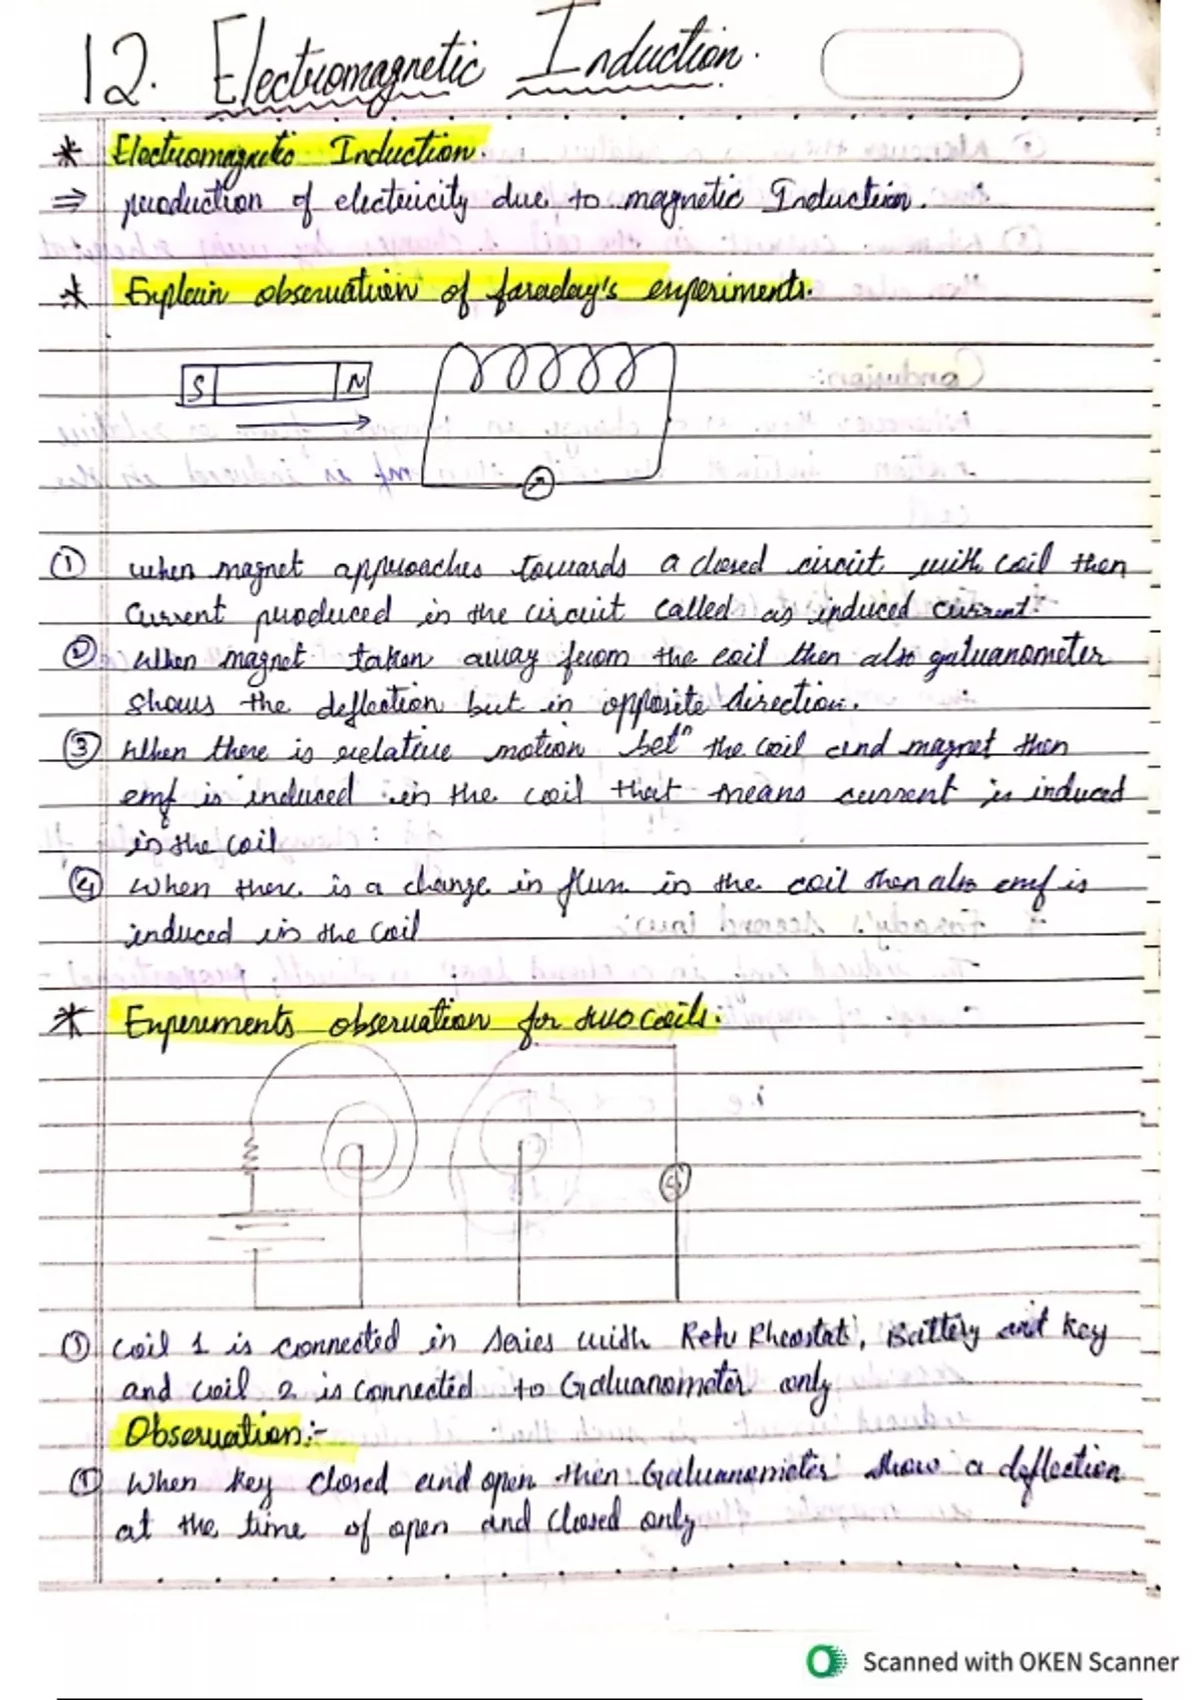 12. Electromagnetic Induction.
* Electromagnetic Induction.
⇒ production of electricity due to magnetic Induction.
* Explain observation of faraday's experiments.
S N
① when magnet approaches towards a closed circuit with coil then
Current produced in the circuit called as induced current.
② When magnet taken away from the coil then also galvanometer
shows the deflection but in opposite direction.
③ When there is relative motion betn the coil and magnet then
emf is induced in the coil that means current is induced
in the coil
④ When there is a change in flux in the coil then also emf is
induced in the coil
* Experiments observation for two coils.
G
① Coil 1 is connected in series with Rheostat, Battery and key
and coil 2 is connected to Galvanometer only
Observation:-
① When key closed and open then Galvanometer show a deflection
at the time of open and closed only
Scanned with OKEN Scanner